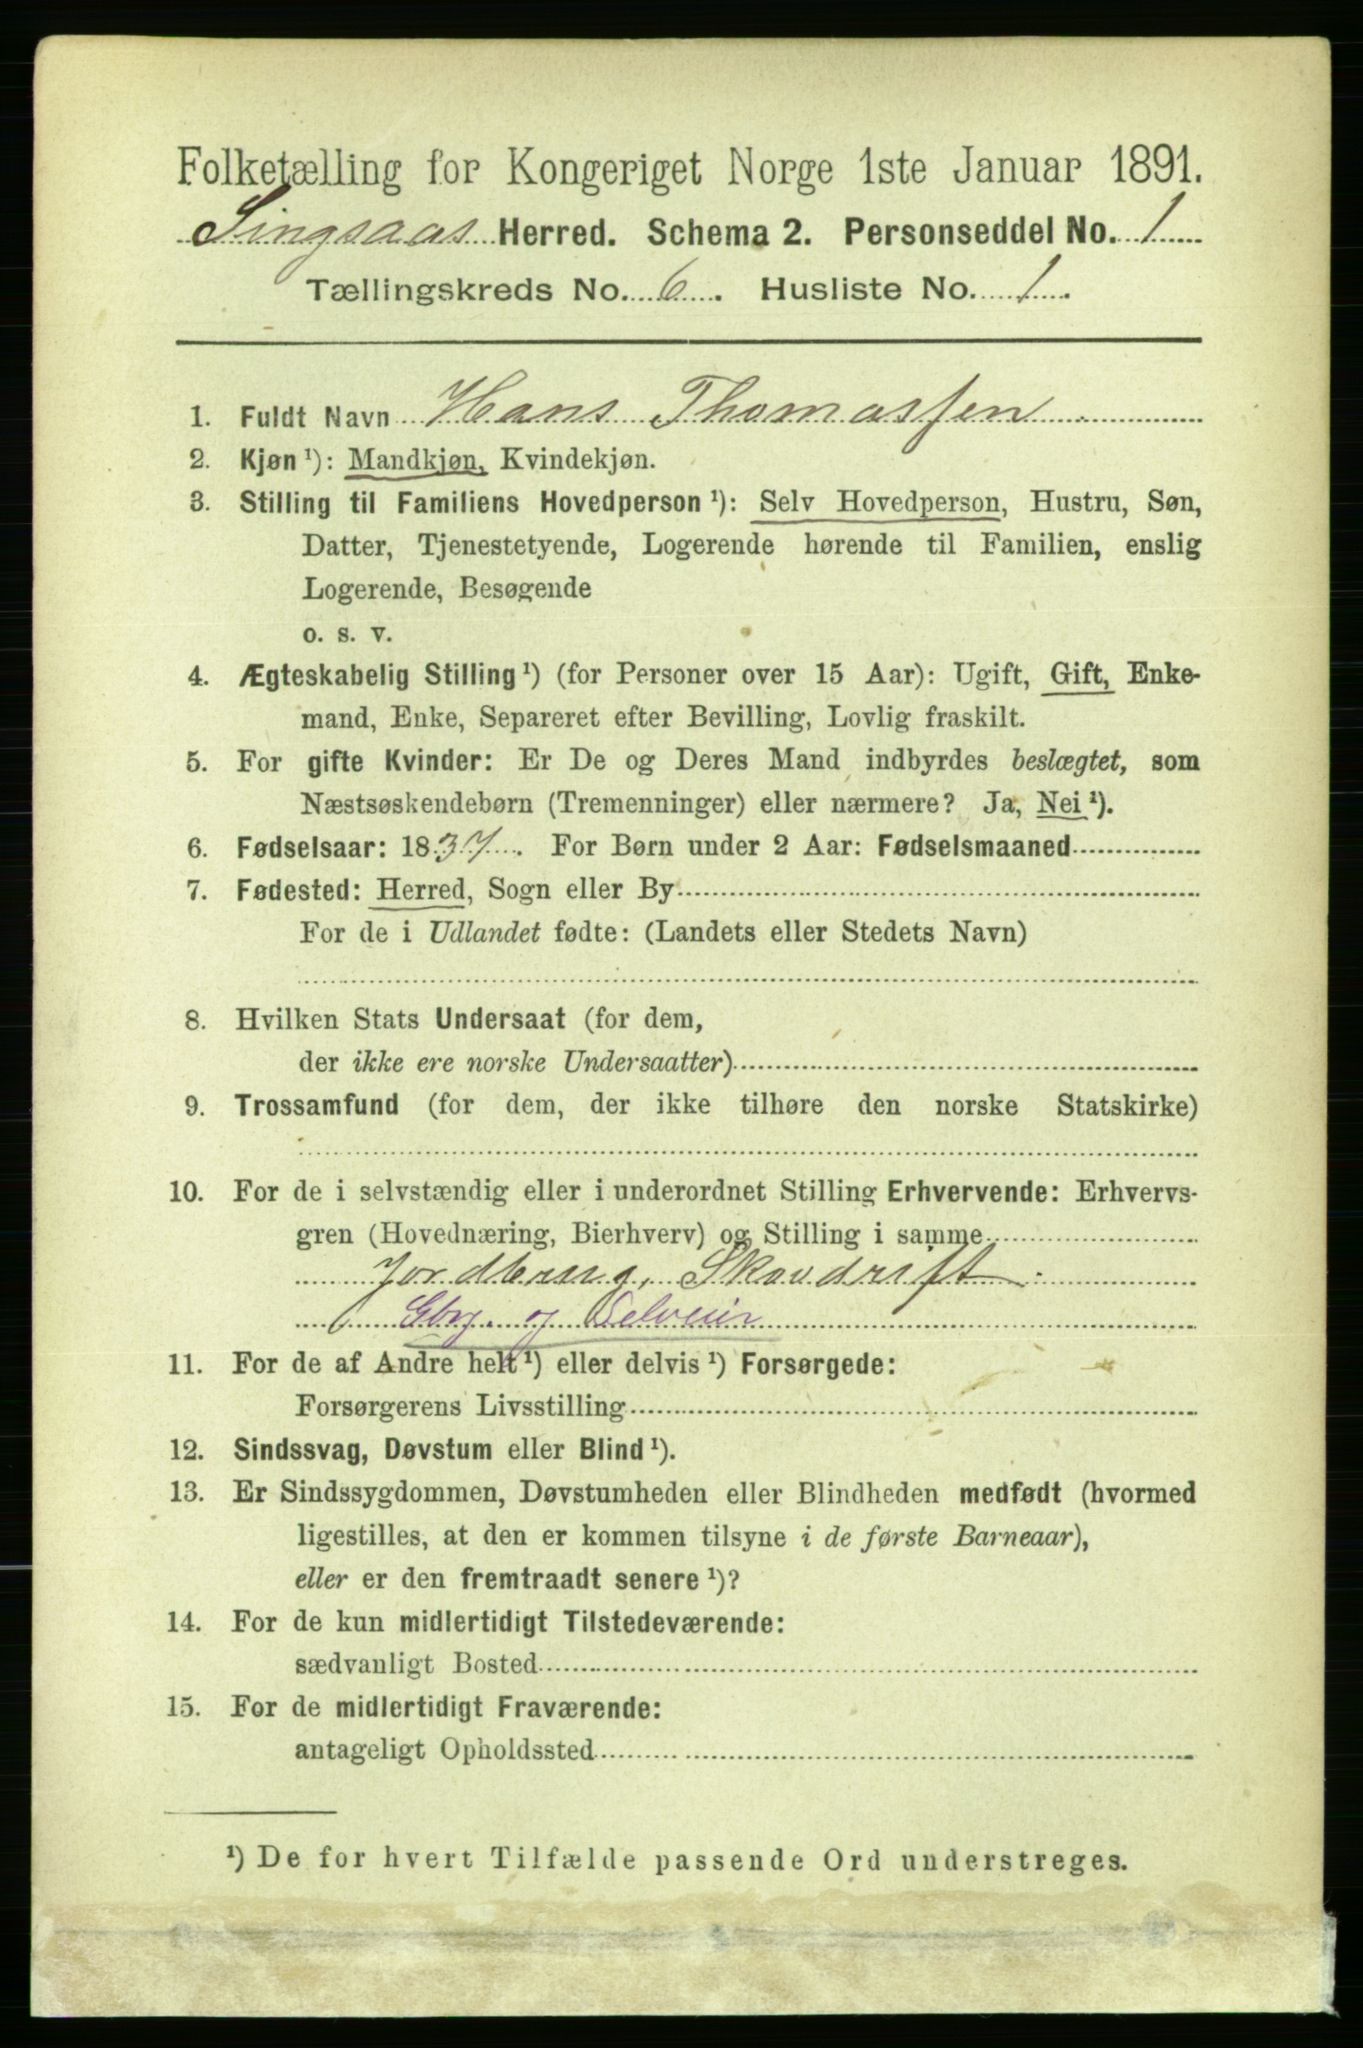 Folketælling for Kongeriget Norge 1ste Januar 1891.
Singsaas Herred. Schema 2. Personseddel No. 1
Tællingskreds No. 6. Husliste No. 1.
1. Fuldt Navn Hans Thomassen
2. Kjøn ¹): Mandkjøn, Kvindekjøn.
3. Stilling til Familiens Hovedperson ¹): Selv Hovedperson, Hustru, Søn,
Datter, Tjenestetyende, Logerende hørende til Familien, enslig
Logerende, Besøgende
o. s. v.
4. Ægteskabelig Stilling ¹) (for Personer over 15 Aar): Ugift, Gift, Enke-
mand, Enke, Separeret efter Bevilling, Lovlig fraskilt.
5. For gifte Kvinder: Er De og Deres Mand indbyrdes beslægtet, som
Næstsøskendebørn (Tremenninger) eller nærmere? Ja, Nei ¹).
6. Fødselsaar: 1837. For Børn under 2 Aar: Fødselsmaaned
7. Fødested: Herred, Sogn eller By
For de i Udlandet fødte: (Landets eller Stedets Navn)
8. Hvilken Stats Undersaat (for dem,
der ikke ere norske Undersaatter)
9. Trossamfund (for dem, der ikke tilhøre den norske Statskirke)
10. For de i selvstændig eller i underordnet Stilling Erhvervende: Erhvervs-
gren (Hovednæring, Bierhverv) og Stilling i samme
Jordbrug, Skovdrift
Gbr. og Selveier
11. For de af Andre helt ¹) eller delvis ¹) Forsørgede:
Forsørgerens Livsstilling
12. Sindssvag, Døvstum eller Blind ¹).
13. Er Sindssygdommen, Døvstumheden eller Blindheden medfødt (hvormed
ligestilles, at den er kommen tilsyne i de første Barneaar),
eller er den fremtraadt senere ¹)?
14. For de kun midlertidigt Tilstedeværende:
sædvanligt Bosted
15. For de midlertidigt Fraværende:
antageligt Opholdssted
¹) De for hvert Tilfælde passende Ord understreges.